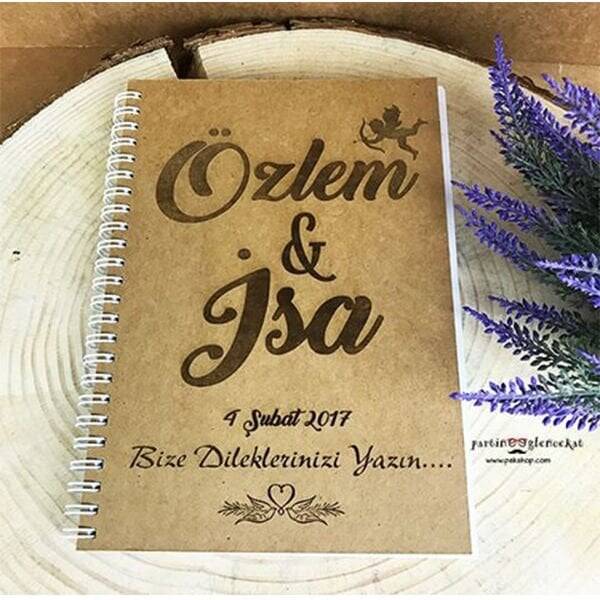 Özlem
&
İsa
4 Şubat 2017
Bize Dileklerinizi Yazın....
www.pekshop.com